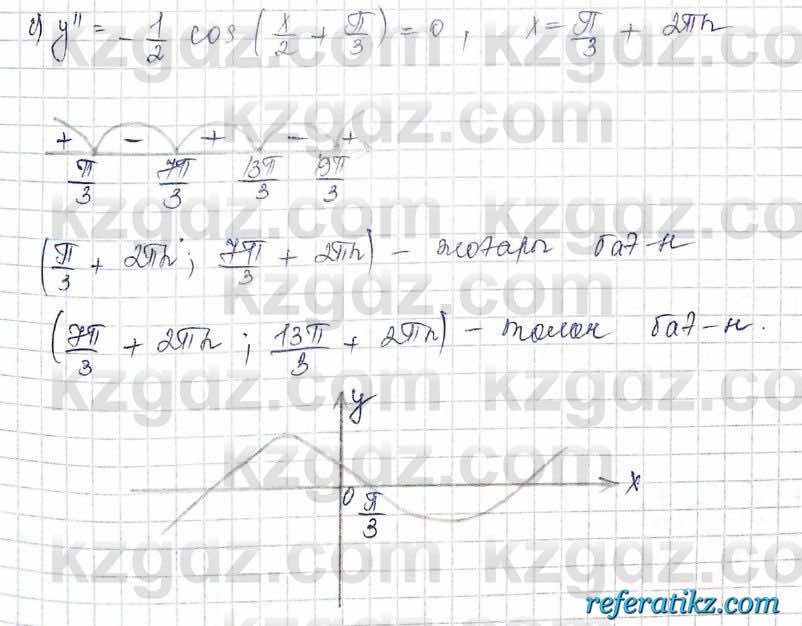 c) y'' = -1/2 cos(x/2 + π/3) = 0, x = π/3 + 2πn
+ - + - +
π/3 7π/3 13π/3 19π/3
(π/3 + 2πn; 7π/3 + 2πn) - жоғары бағ-н
(7π/3 + 2πn; 13π/3 + 2πn) - төмен бағ-н.
y
0 π/3 x
kzgdz.com
referatikz.com